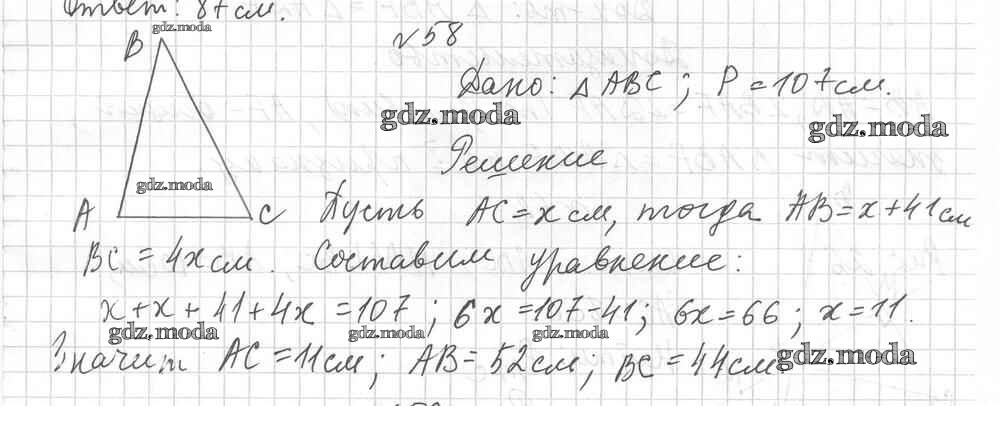 Ответ: 87 см.
gdz.moda
B
№58
Дано: △ABC; P = 107 см.
gdz.moda
gdz.moda
Решение
gdz.moda
A
C
Пусть AC = x см, тогда AB = x + 41 см
BC = 4x см. Составим уравнение:
x + x + 41 + 4x = 107; 6x = 107 - 41; 6x = 66; x = 11.
gdz.moda gdz.moda gdz.moda
Значит AC = 11 см; AB = 52 см; BC = 44 см.
gdz.moda